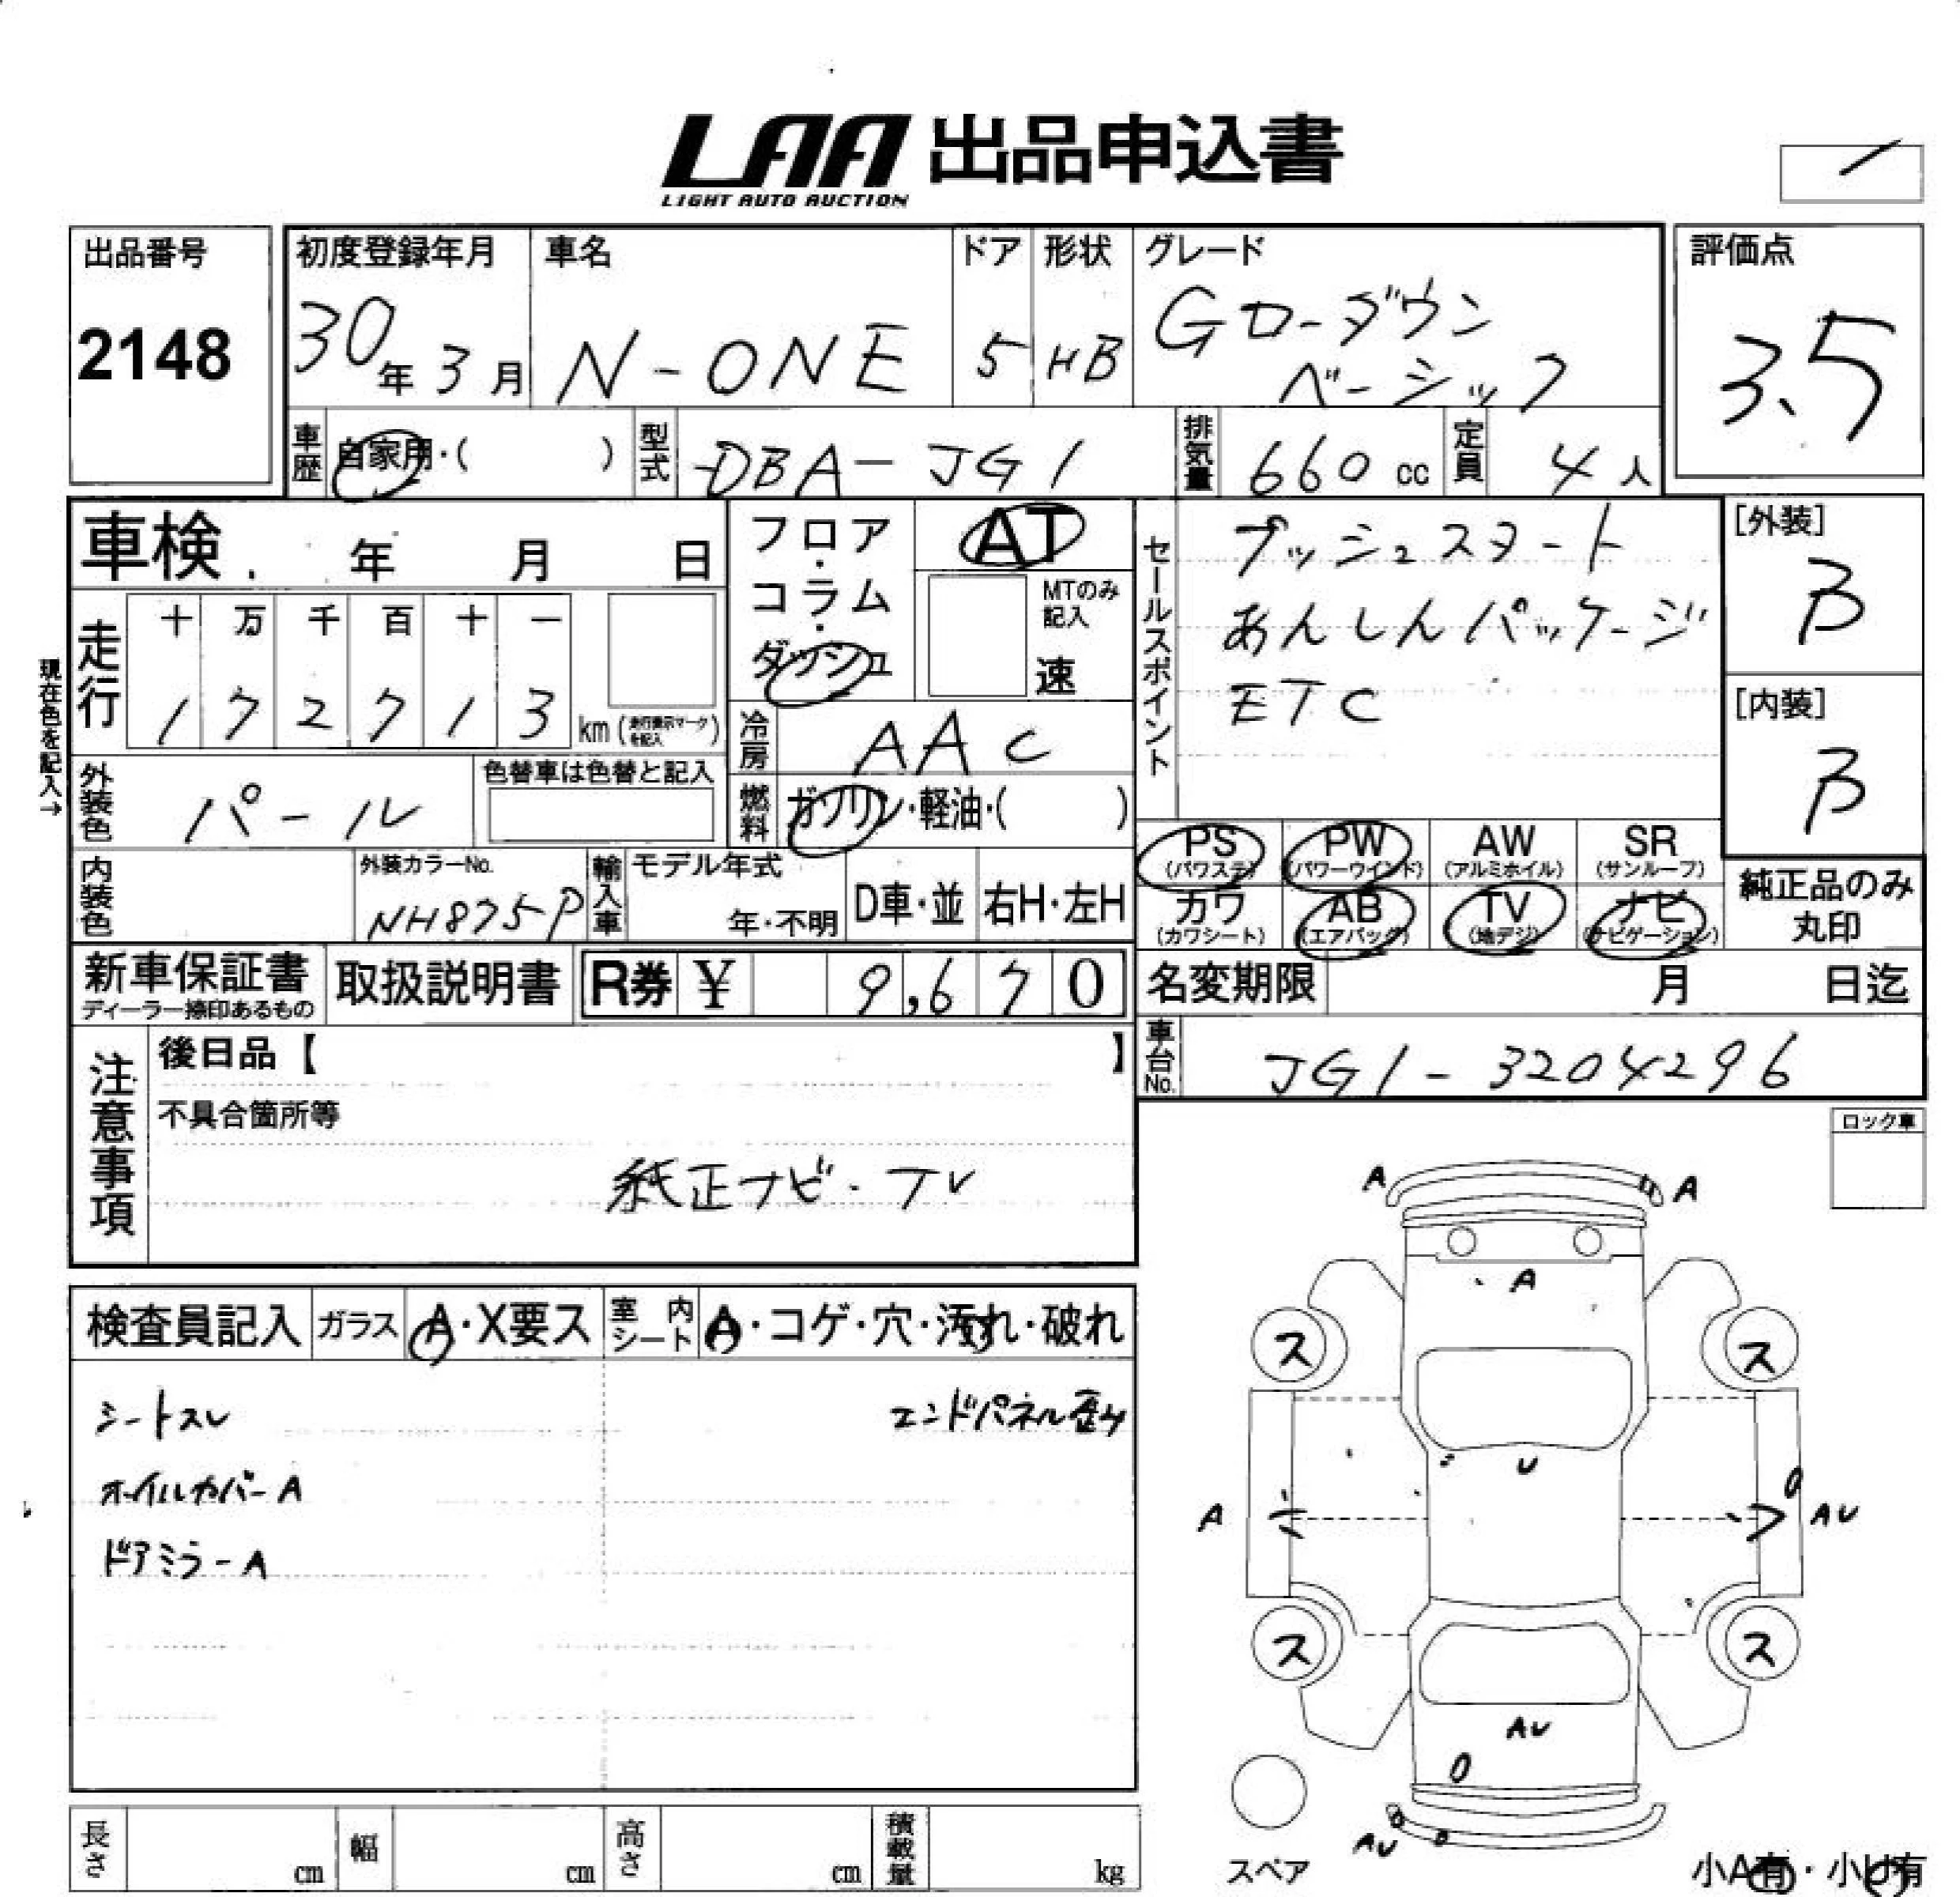 LAA 出品申込書
LIGHT AUTO AUCTION
出品番号
2148
初度登録年月
30年3月
車名
N-ONE
ドア
5
形状
HB
グレード
Gローダウン
ベーシック
評価点
3.5
車歴
自家用・( )
型式
DBA-JG1
排気量
660 cc
定員
4人
車検 年 月 日
フロア・コラム・ダッシュ
AT
MTのみ記入
速
セールスポイント
プッシュスタート
あんしんパッケージ
ETC
[外装]
B
[内装]
B
現在色を記入→
走行
十 万 千 百 十 一
1 7 2 7 1 3 km (走行表示マークを記入)
冷房
AAC
外装色
パール
色替車は色替と記入
燃料
ガソリン・軽油・( )
PS (パワステ)
PW (パワーウインド)
AW (アルミホイル)
SR (サンルーフ)
カワ (カワシート)
AB (エアバッグ)
TV (地デジ)
ナビ (ナビゲーション)
純正品のみ
丸印
内装色
外装カラーNo.
NH875P
輸入車
モデル年式
年・不明
D車・並
右H・左H
新車保証書
ディーラー捺印あるもの
取扱説明書
R券 ¥ 9,670
名変期限 月 日迄
車台No.
JG1-3204296
注意事項
後日品【 】
不具合箇所等
純正ナビ・TV
ロック車
検査員記入
ガラス
A・X要ス
室内シート
A・コゲ・穴・汚れ・破れ
シートスレ
エンドパネル歪み
オイルカバーA
ドアミラーA
A A
A
ス ス
U
A AU
ス ス
AU
AU
スペア
小A有・小U有
長さ cm
幅 cm
高さ cm
積載量 kg